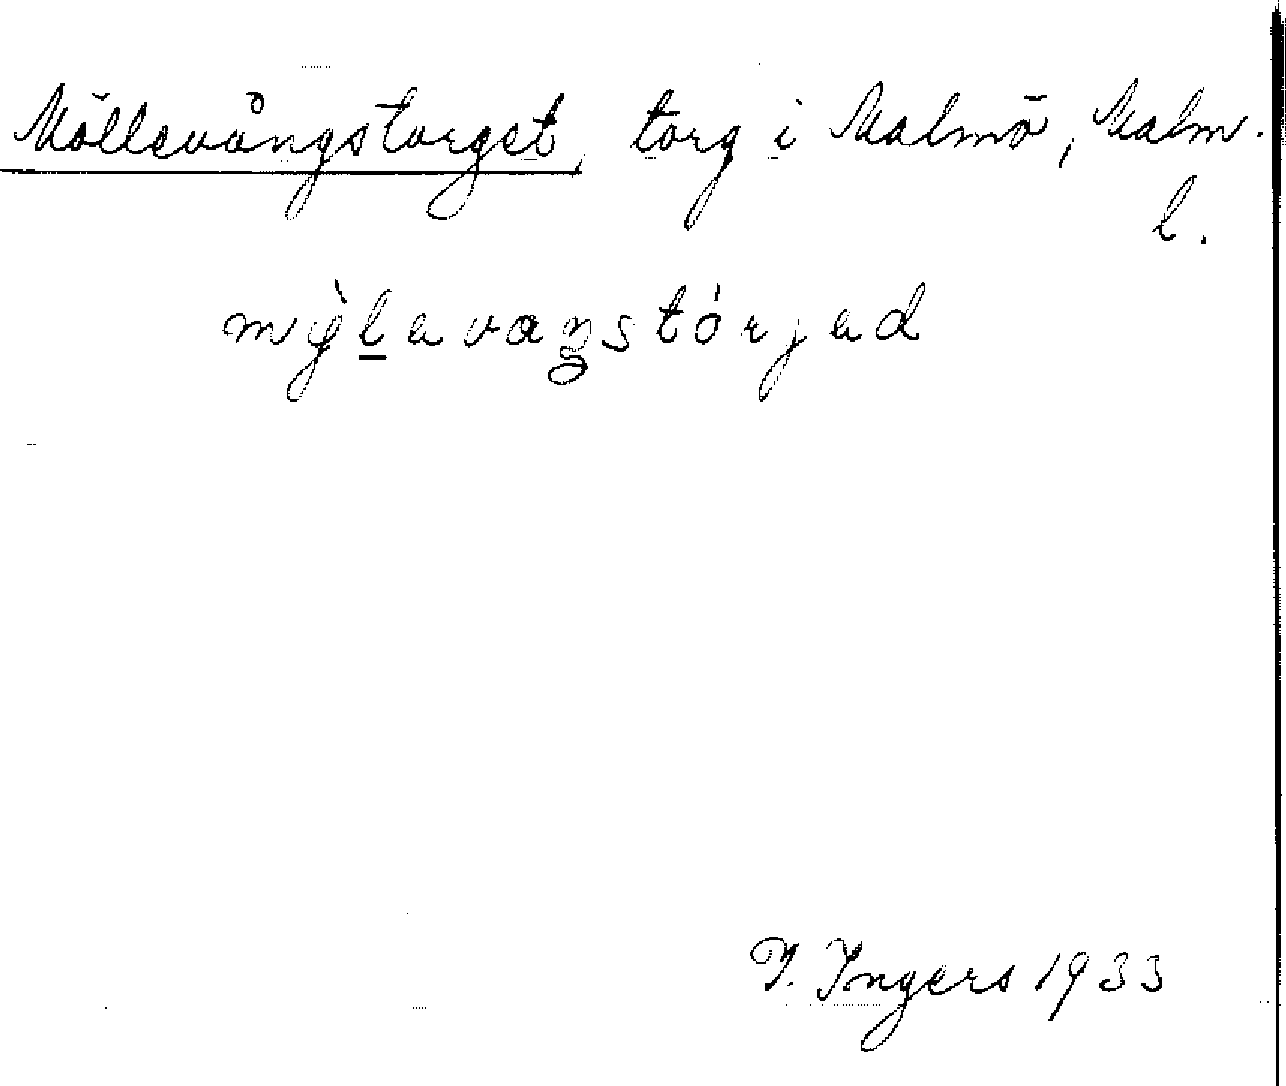 Möllevångstorget, torg i Malmö, Malm.
l.
mỳlavaŋstórjad
I. Ingers 1933